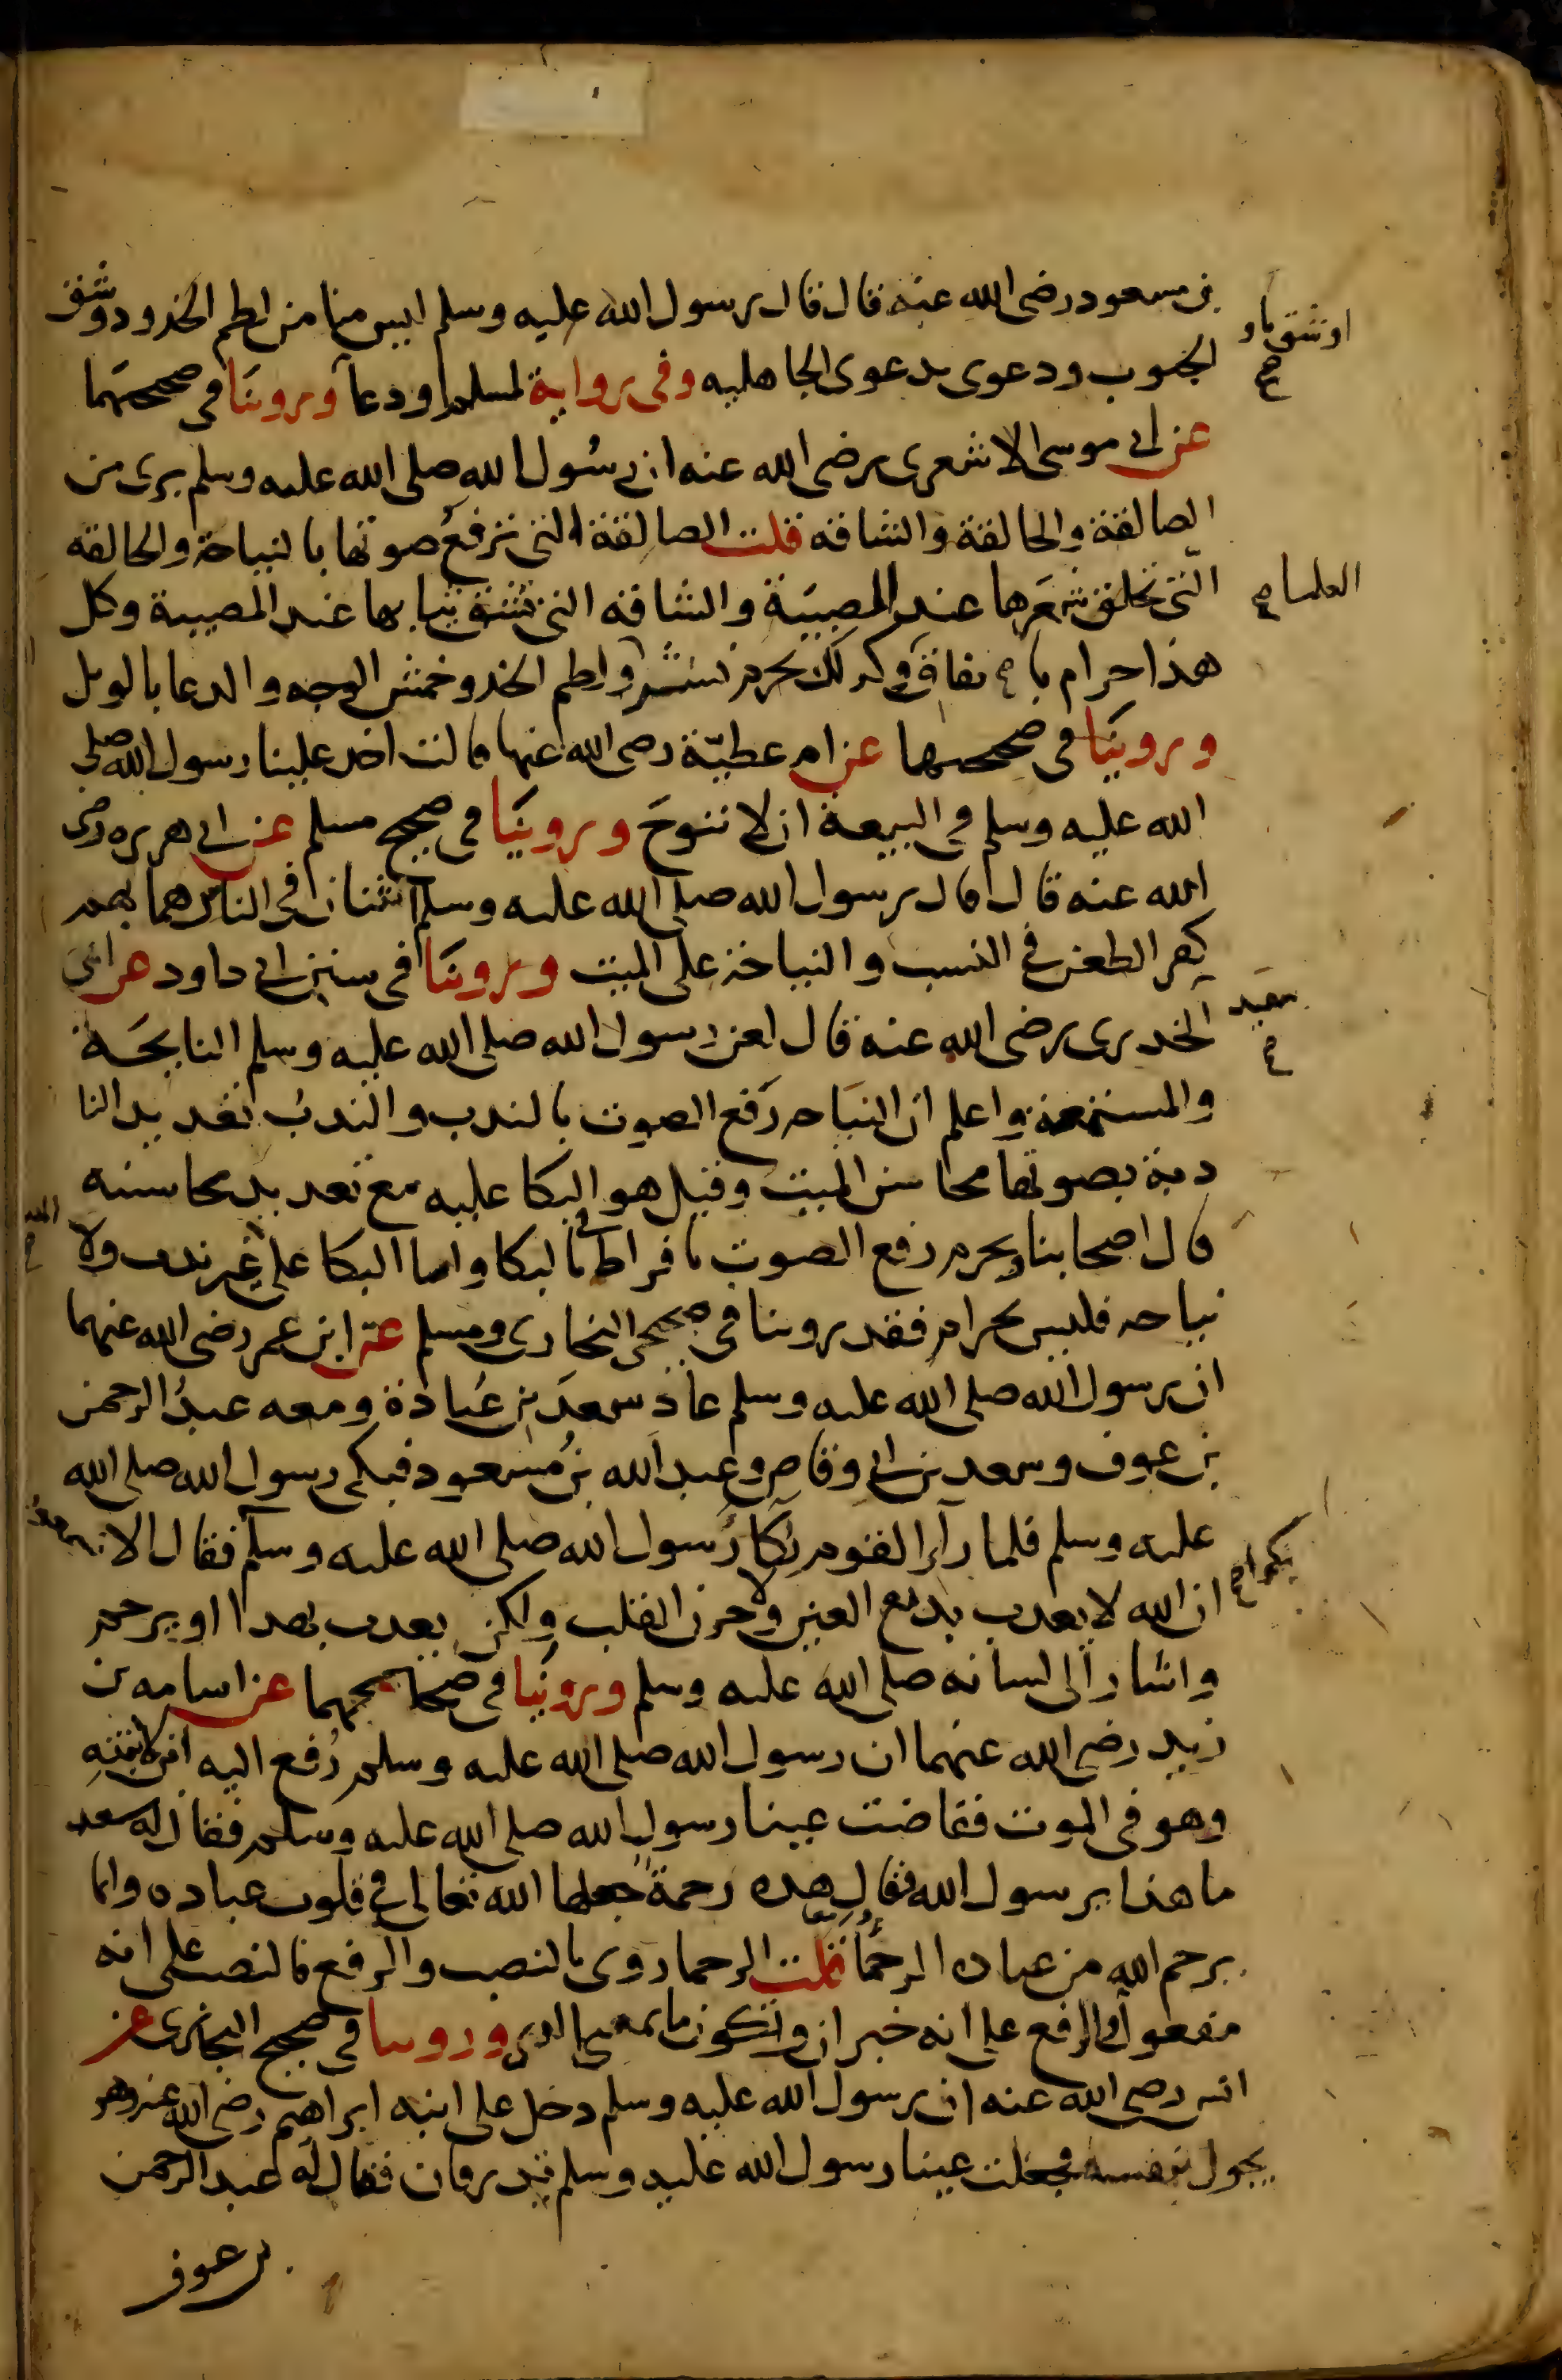 بن مسعود رضى الله عنه قال قال رسول الله عليه وسلم ليس منا من لطم الخدود وشق
اوشق
الجيوب ودعوى بدعوى الجاهليه وفى رواية لمسلم اودعا وروينا فى صحيحهما
عن ابى موسى الاشعرى رضى الله عنه ان رسول الله صلى الله عليه وسلم برى من
الصالقة والحالقة والشاقه قلت الصالقة التى ترفع صوتها بالنياحة والحالقه
التى تحلق شعرها عند المصيبة والشاقه التى تشق ثيابها عند المصيبة وكل
العلما صح
هذا حرام باتفاق وكذلك يحرم نشر ولطم الخد وخمش الوجه والدعا بالويل
وروينا فى صحيحهما عن ام عطية رضى الله عنها قالت اخذ علينا رسول الله صلى
الله عليه وسلم فى البيعة ان لا ننوح وروينا فى صحيح مسلم عن ابى هريره رضى
الله عنه قال قال رسول الله صلى الله عليه وسلم اثنتان فى الناس هما بهم
كفر الطعن فى النسب والنياحة على الميت وروينا فى سنن ابى داود عن ابى
سعيد صح
الخدرى رضى الله عنه قال لعن رسول الله صلى الله عليه وسلم النايحة
والمستمعة واعلم ان النياحه رفع الصوت بالندب والندب تعديد النا
دبة بصوتها محاسن الميت وقيل هو البكا عليه مع تعديد محاسنه
قال اصحابنا ويحرم رفع الصوت بافراط فى البكا واما البكا على غير ندب ولا
نياحه فليس بحرام فقد روينا فى صحيحى البخارى ومسلم عن ابن عمر رضى الله عنهما
ان رسول الله صلى الله عليه وسلم عاد سعد بن عبادة ومعه عبد الرحمن
بن عوف وسعد بن ابى وقاص وعبد الله بن مسعود فبكى رسول الله صلى الله
عليه وسلم فلما راى القوم بكا رسول الله صلى الله عليه وسلم فقال الا تسمعون
بكوا صح
ان الله لا يعذب بدمع العين ولا حزن القلب ولكن يعذب بهذا او يرحم
واشار الى لسانه صلى الله عليه وسلم وروينا فى صحيحيهما عن اسامه بن
زيد رضى الله عنهما ان رسول الله صلى الله عليه وسلم رفع اليه ابن لابنته
وهو فى الموت ففاضت عينا رسول الله صلى الله عليه وسلم فقال له سعد
ما هذا يرسول الله فقال هذه رحمة جعلها الله تعالى فى قلوب عباده وانما
يرحم الله من عباده الرحما قلت الرحما روى بالنصب والرفع فالنصب على انه
مفعول والرفع على انه خبر ان وتكون ما بمعنى الذى وروينا فى صحيح البخارى عن
انس رضى الله عنه ان رسول الله عليه وسلم دخل على ابنه ابراهيم رضى الله عنه وهو
يجول بنفسه فجعلت عينا رسول الله عليه وسلم تدرفان فقال له عبد الرحمن
بن عوف